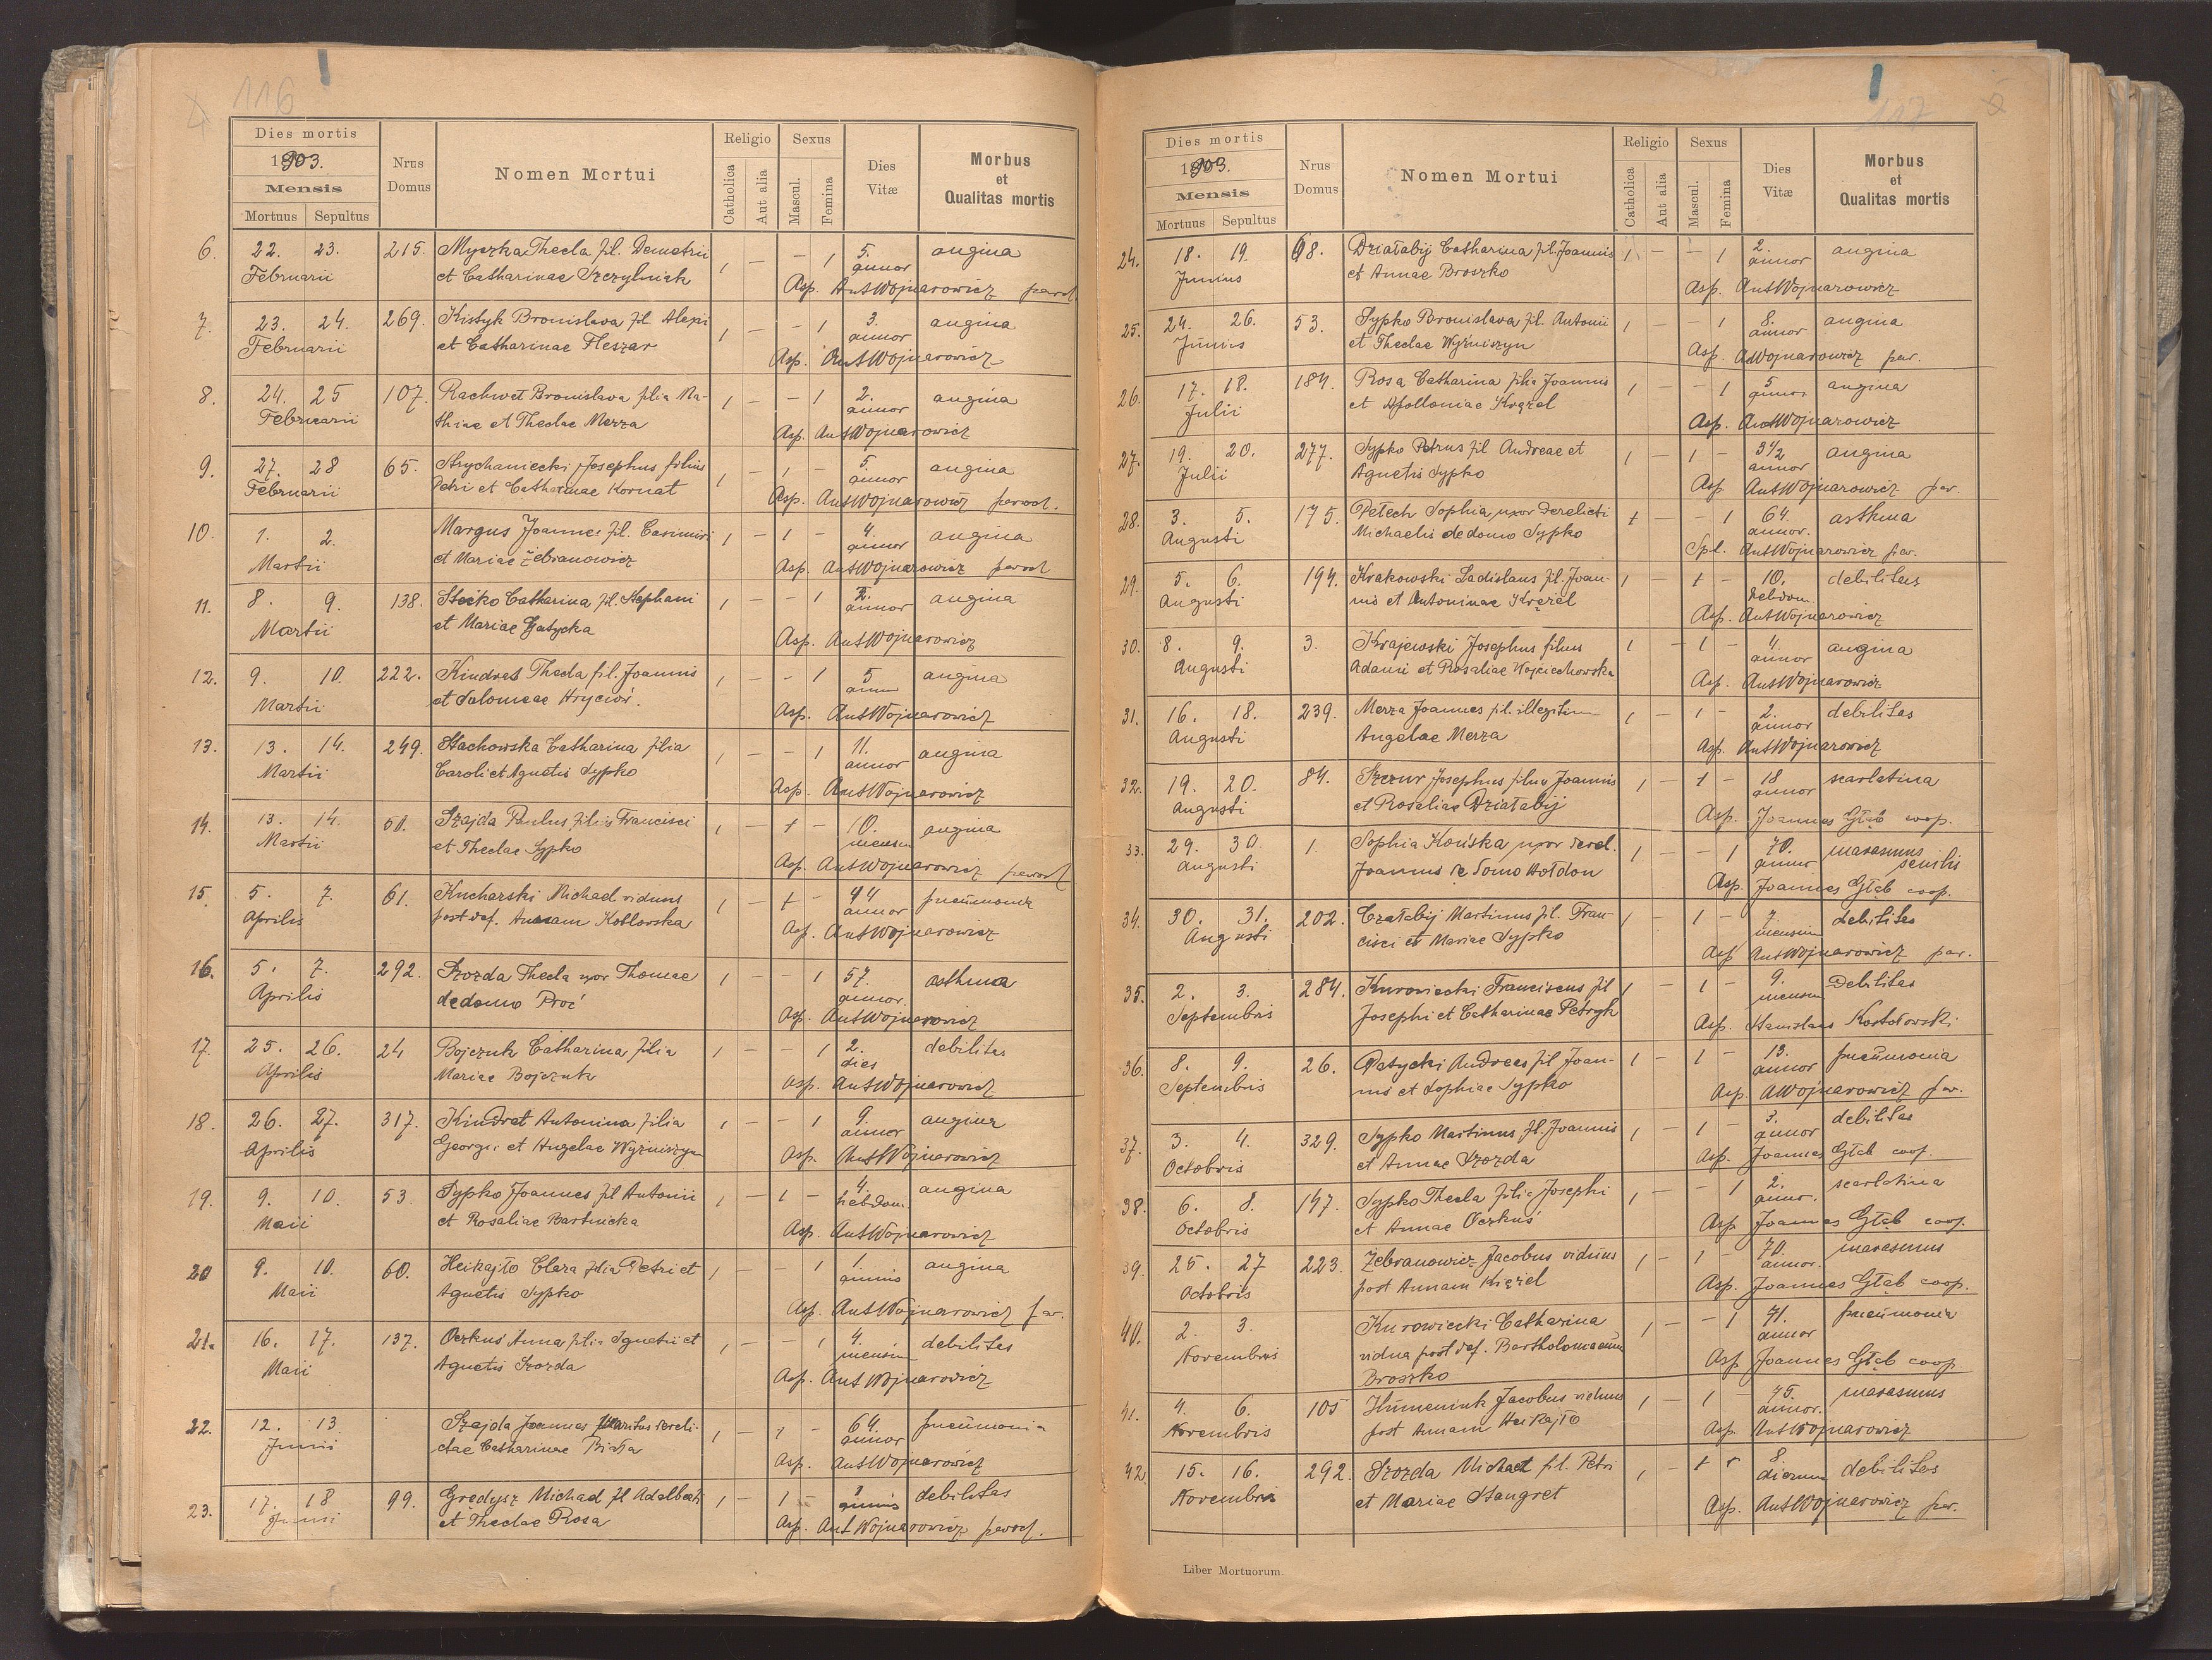 116
Dies mortis
1903.
Mensis
Mortuus Sepultus
Nrus Domus
Nomen Mortui
Religio
Catholica
Aut alia
Sexus
Mascul.
Femina
Dies Vitæ
Morbus et Qualitas mortis
6. 22. 23. 215. Myczka Thecla fil. Demetrii 1 — — 1 5. angina
Februarii et Catharinae Szczylniak annor
Asp. AntWojnarowicz paroch
7. 23. 24. 269. Kistyk Bronislava fil. Alexi 1 — — 1 3. angina
Februarii et Catharinae Fleszar annor
Asp. AntWojnarowicz
8. 24. 25 107. Rachwał Bronislava filia Ma- 1 — — 1 2. angina
Februarii thiae et Theclae Merza annor
Asp. AntWojnarowicz
9. 27. 28 65. Strychaniecki Josephus filius 1 — 1 — 5. angina
Februarii Petri et Catharinae Kornat annor
Asp. AntWojnarowicz paroch.
10. 1. 2. Margus Joannes fil. Casimiri 1 — 1 — 4. angina
Martii et Mariae Żebranowicz annor
Asp. AntWojnarowicz paroch
11. 8. 9. 138. Steiko Catharina fil. Stephani 1 — — 1 2. angina
Martii et Mariae Gatycka annor
Asp. AntWojnarowicz
12. 9. 10. 222. Kindrat Thecla fil. Joannis 1 — — 1 5 angina
Martii et Salomeae Hryciów. annor
Asp. AntWojnarowicz
13. 13. 14. 249. Stachowska Catharina filia 1 — — 1 11. angina
Martii Caroli et Agnetis Sypko annor
Asp. AntWojnarowicz
14. 13. 14. 50. Szajda Paulus filius Francisci 1 — 1 — 10. angina
Martii et Theclae Sypko mensium
Asp. AntWojnarowicz paroch
15. 5. 7. 61. Kucharski Michael viduus 1 — 1 — 44 pneumonia
Aprilis post def. Annam Kotlowska annor
Asp. AntWojnarowicz
16. 5. 7. 292. Szozda Thecla uxor Thomae 1 — — 1 57. asthma
Aprilis de domo Proć annor.
Asp. AntWojnarowicz
17. 25. 26. 24 Bojczuk Catharina filia 1 — — 1 2. debilitas
Aprilis Mariae Bojczuk dies
Asp. AntWojnarowicz
18. 26. 27. 317. Kindrat Antonina filia 1 — — 1 9. angina
Aprilis Georgii et Angelae Wyżniszyn annor
Asp. AntWojnarowicz
19. 9. 10. 53. Sypko Joannes fil Antonii 1 — 1 — 4. angina
Maii et Rosaliae Bartnicka hebdom.
Asp. AntWojnarowicz
20 9. 10. 60. Heikajło Clara filia Petri et 1 — — 1 1. angina
Maii Agnetis Sypko annus
Asp. AntWojnarowicz par.
21. 16. 17. 137. Oczkuś Anna filia Ignatii et 1 — — 1 4. debilitas
Maii Agnetis Szozda mensium
Asp. AntWojnarowicz
22. 12. 13. Szajda Joannes maritus dereli- 1 — 1 — 64. pneumonia
Junii ctae Catharinae Biała annor
Asp. AntWojnarowicz
23. 17. 18 99. Grędysz Michael fil Adalberti 1 — 1 — 1 debilitas
Junii et Theclae Rosa annus
Asp. AntWojnarowicz paroch.
117
Dies mortis
1903.
Mensis
Mortuus Sepultus
Nrus Domus
Nomen Mortui
Religio
Catholica
Aut alia
Sexus
Mascul.
Femina
Dies Vitæ
Morbus et Qualitas mortis
24. 18. 19. 68. Działabij Catharina fil. Joannis 1 — — 1 2. angina
Junius et Annae Broszko annor
Asp. AntWojnarowicz
25. 24. 26. 53. Sypko Bronislava fil. Antonii 1 — — 1 8. angina
Junius et Theclae Wyżniszyn annor
Asp. AWojnarowicz par.
26. 17. 18. 184. Rosa Catharina filia Joannis 1 — — 1 5 angina
Julii et Apolloniae Krężel annor
Asp. AntWojnarowicz
27. 19. 20. 277. Sypko Petrus fil Andreae et 1 — 1 — 3 1/2 angina
Julii Agnetis Sypko annor
Asp AntWojnarowicz par.
28. 3. 5. 175. Petech Sophia uxor derelicti 1 — — 1 64. asthma
Augusti Michaelis de domo Sypko annor.
Spl. AntWojnarowicz par.
29. 5. 6. 194. Krakowski Ladislaus fil. Joan- 1 — 1 — 10. debilitas
Augusti nis et Antoninae Krężel hebdom.
Asp. AntWojnarowicz
30. 8. 9. 3. Krajewski Josephus filius 1 — 1 — 4. angina
Augusti Adami et Rosaliae Wojciechowska annor
Asp. AntWojnarowicz
31. 16. 18. 239. Merza Joannes fil. illegitim 1 — 1 — 2. debilitas
Augusti Angelae Merza annor
Asp. AntWojnarowicz
32. 19. 20. 84. Szczur Josephus filius Joannis 1 — 1 — 18 scarlatina
Augusti et Rosaliae Działabij annor
Asp. Joannes Głąb coop.
33. 29. 30. 1. Sophia Końska uxor derel. 1 — — 1 70. marasmus
Augusti Joannis de domo Hołdon annor senilis
Asp. Joannes Głąb coop.
34. 30. 31. 202. Czałabij Martinus fil. Fran- 1 — 1 — 7. debilitas
Augusti cisci et Mariae Sypko mensium
Asp AntWojnarowicz par.
35. 2. 3. 284. Kurowiecki Franciscus fil 1 — 1 — 9. Debilitas
Septembris Josephi et Catharinae Petryk mensium
Asp. Stanislaus Kostołowski
36. 8. 9. 26. Patycki Andreas fil Joan- 1 — 1 — 13. pneumonia
Septembris nis et Sophiae Sypko annor
Asp. AWojnarowicz par.
37. 3. 4. 329. Sypko Martinus fil. Joannis 1 — 1 — 3. debilitas
Octobris et Annae Szozda annor
Asp. Joannes Głąb coop.
38. 6. 8. 147. Sypko Thecla filia Josephi 1 — — 1 2. scarlatina
Octobris et Annae Oczkuś annor.
Asp Joannes Głąb coop.
39. 25. 27 223. Żebranowicz Jacobus viduus 1 — 1 — 70. marasmus
Octobris post Annam Krężel annor.
Asp. Joannes Głąb coop.
40. 2. 3. Kurowiecki Catharina 1 — — 1 71. pneumonia
Novembris vidua post def. Bartholomaeum annor
Broszko Asp Joannes Głąb coop.
41. 4. 6. 105 Humeniuk Jacobus viduus 1 — 1 — 75. marasmus
Novembris post Annam Heikajło annor.
Asp. AntWojnarowicz
42. 15. 16. 292. Szozda Michael fil. Petri 1 — 1 8 debilitas
Novembris et Mariae Stangret dierum
Asp. AntWojnarowicz par.
Liber Mortuorum